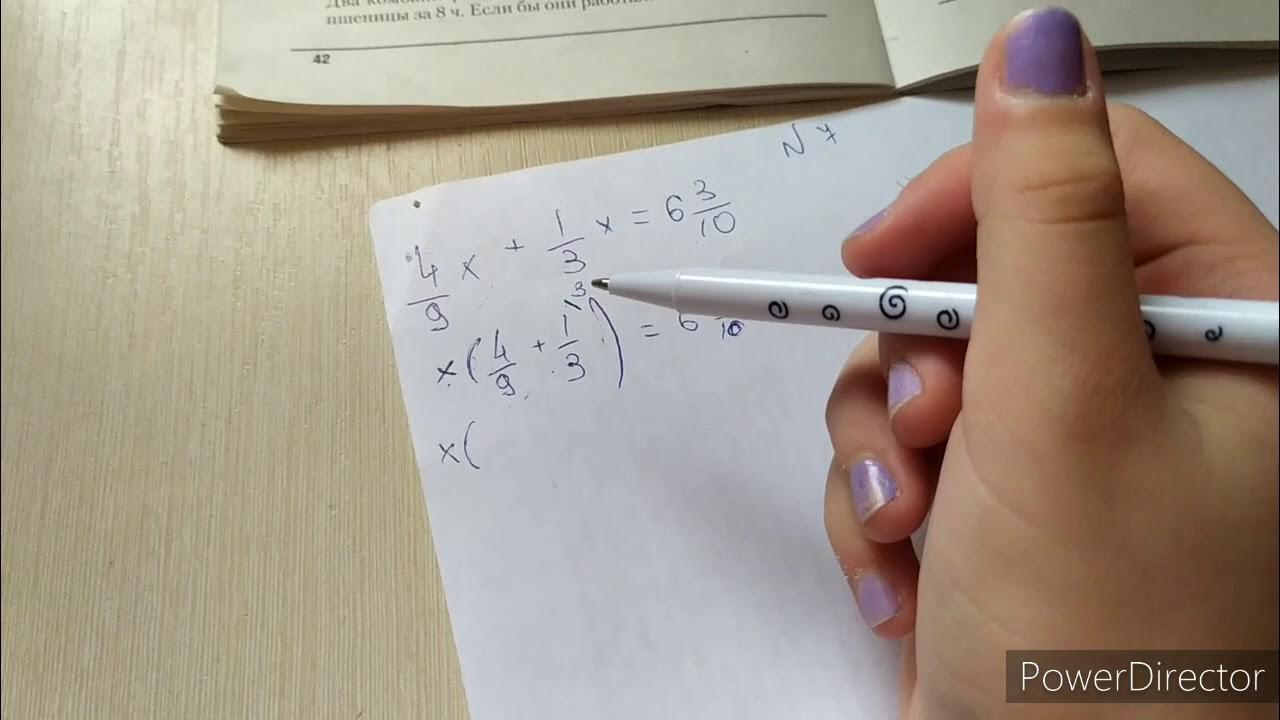 Два
пшеницы за 8 ч. Если бы они
42
N 7
4/9 x + 1/3 x = 6 3/10
x(4/9 + 1/3 ³) = 6 /10
x(
PowerDirector